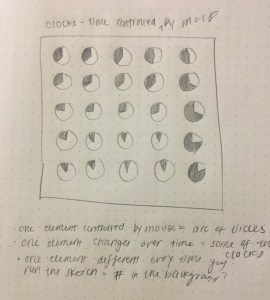 clocks - time controlled by mouse
· one element controlled by mouse = arc of circles
· one element changes over time = some of the clocks
· one element different every time you
run the sketch = # in the background?